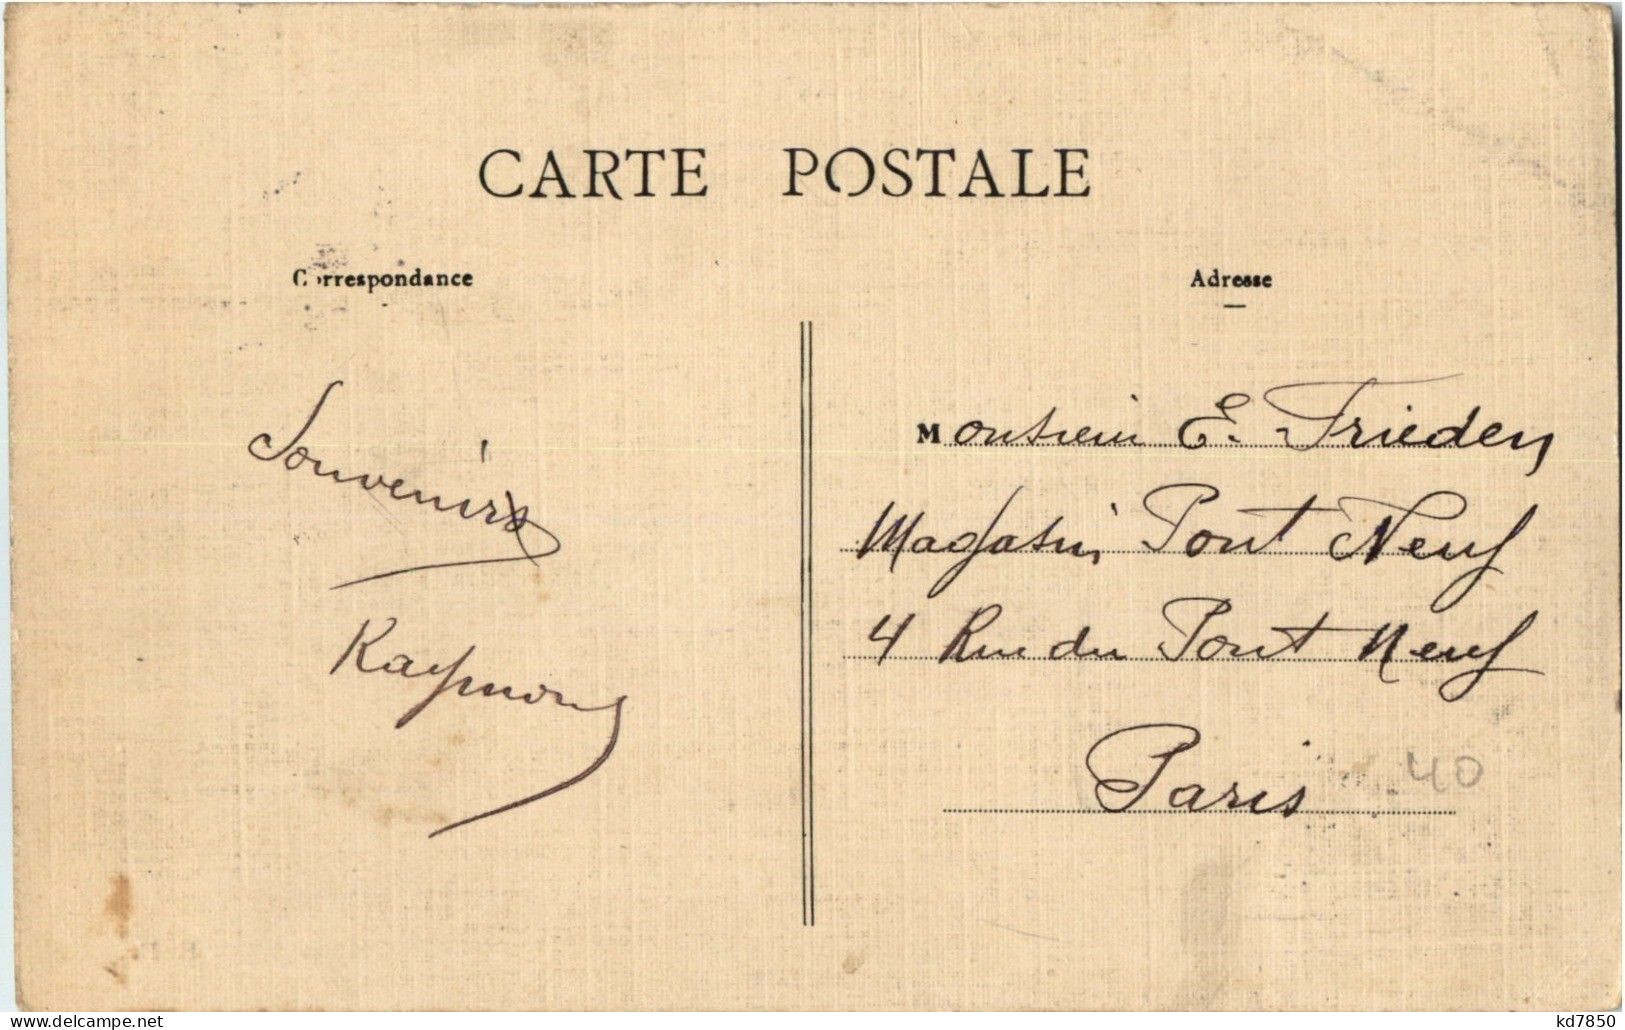 CARTE POSTALE
Correspondance
Adresse
Souvenirs
Raymond
Monsieur E. Frieden
Magasin Pont Neuf
4 Rue du Pont Neuf
Paris
40
www.delcampe.net
kd7850